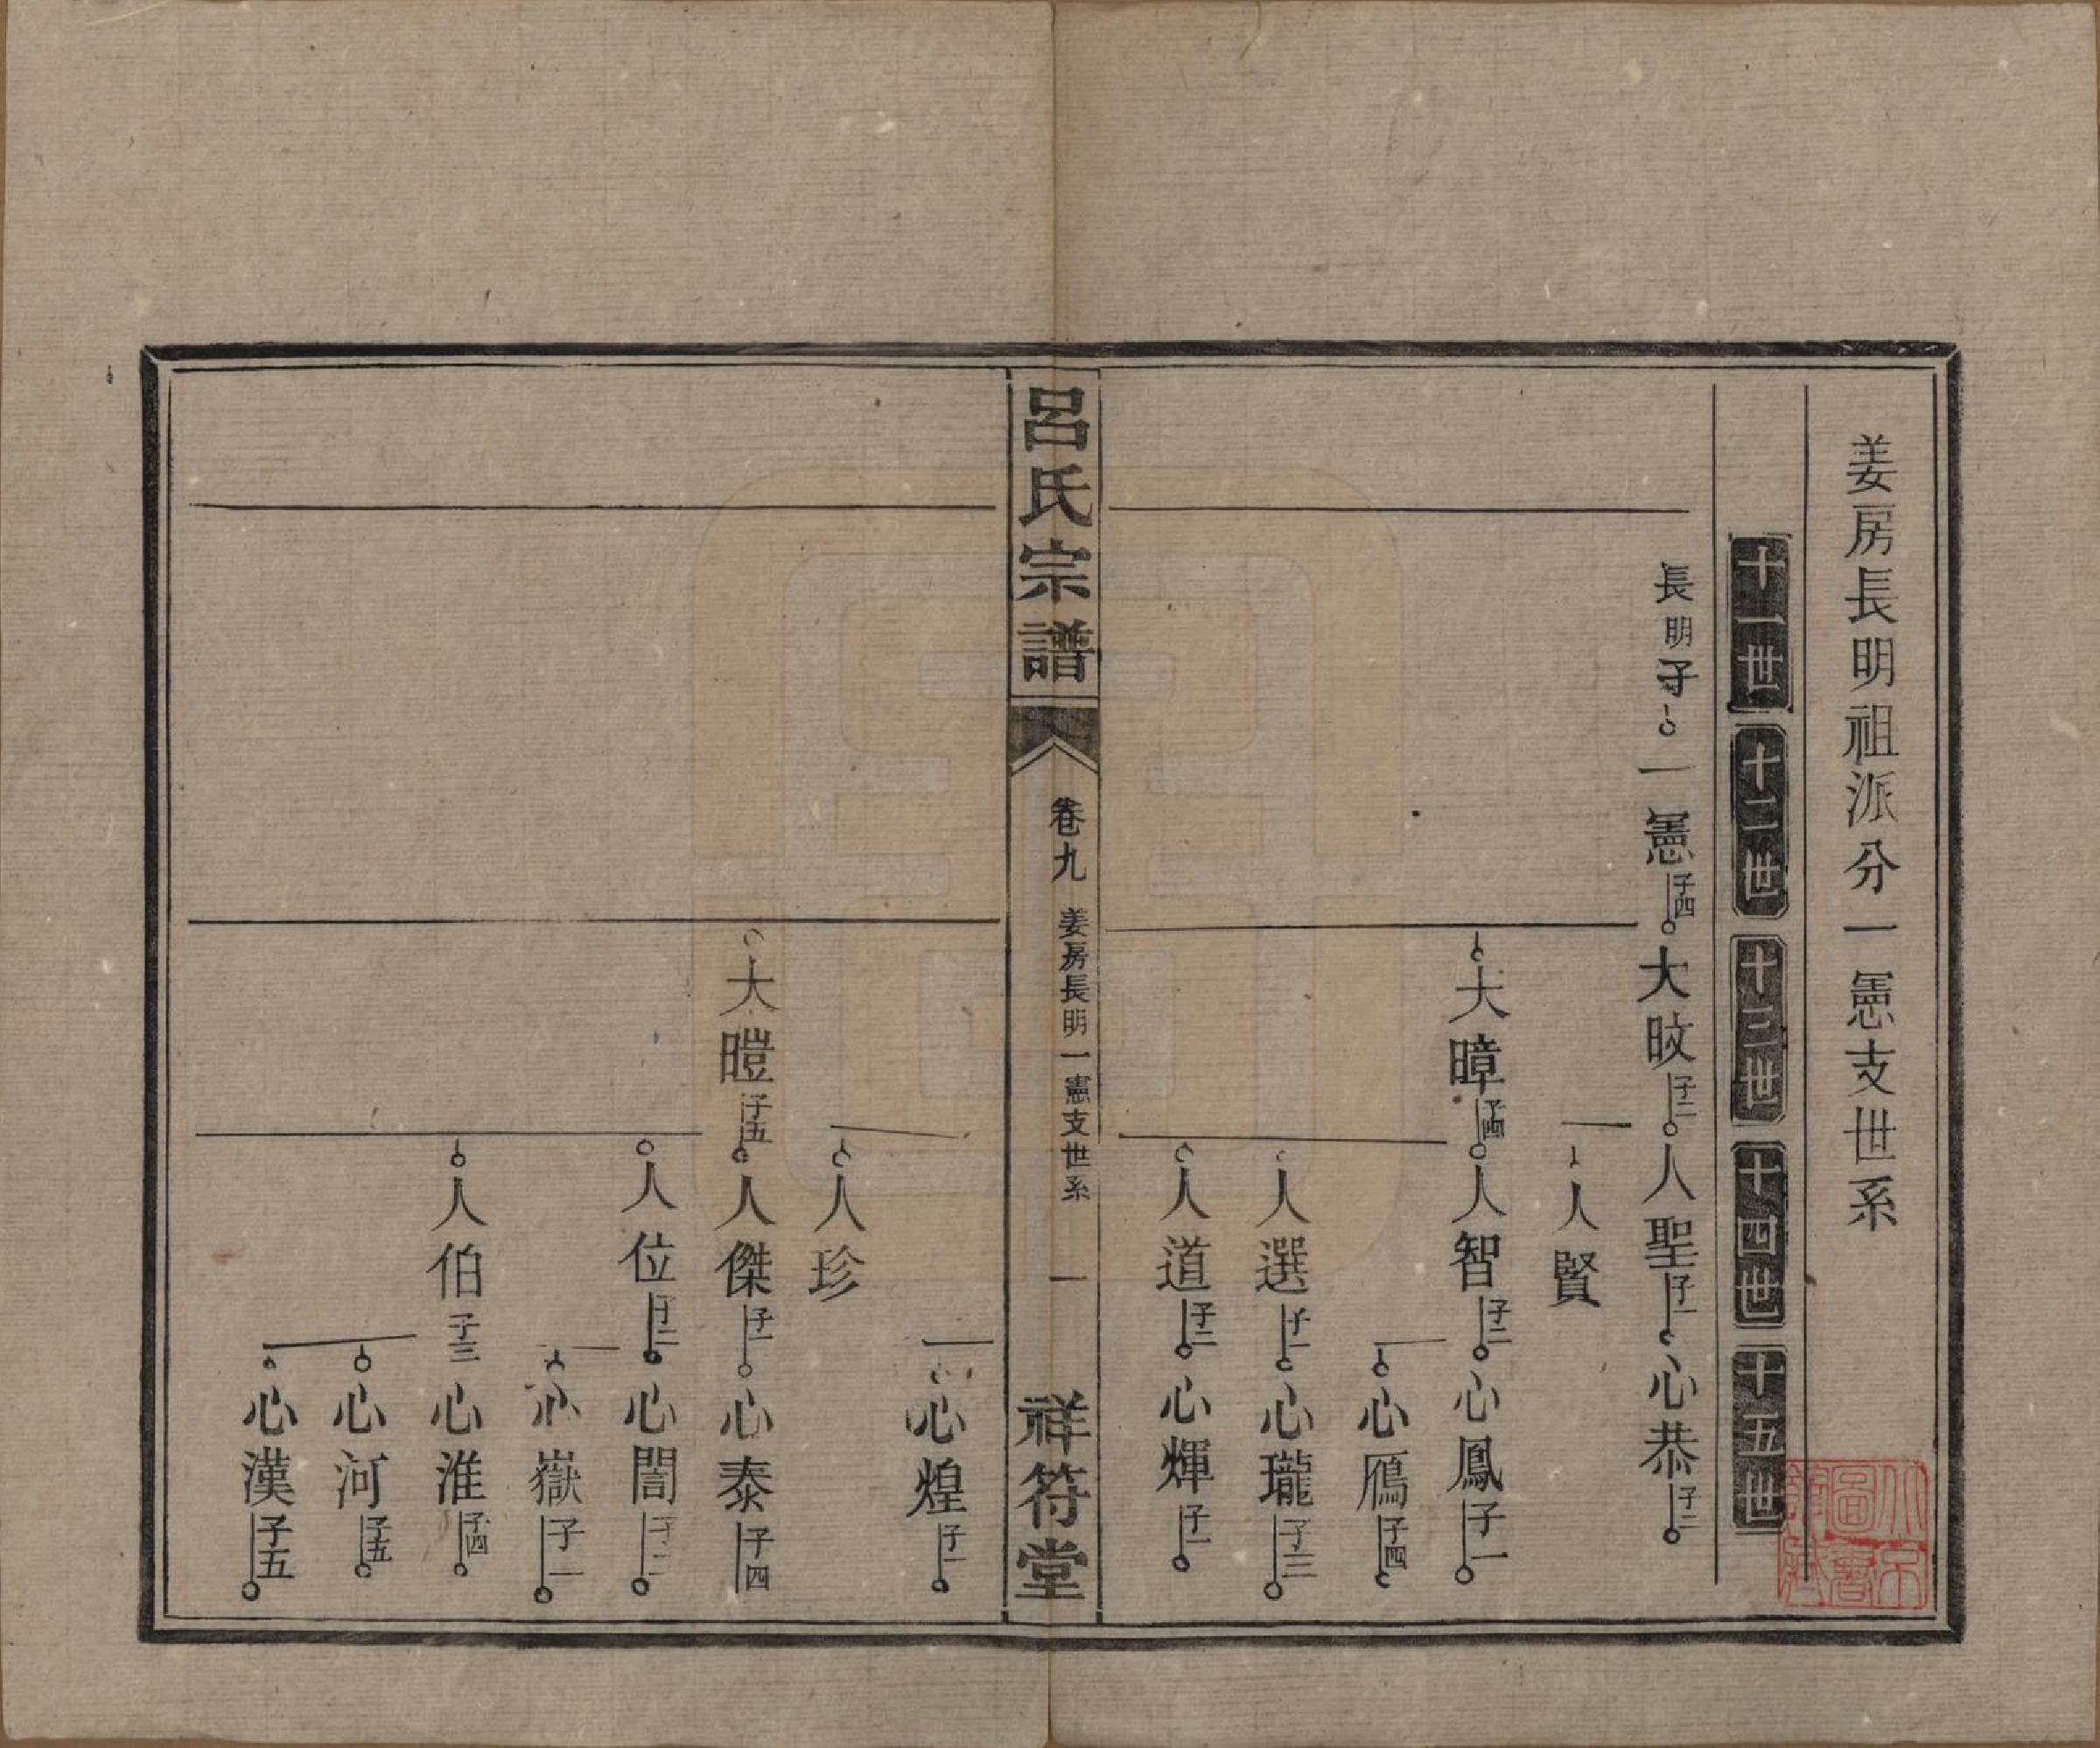 姜房長明祖派分一憲支世系
十一世
十二世
十三世
十四世
十五世
長明子
一憲子四
大旼子二
人聖子一
心恭子二
人賢
大暲子四
人智子二
心鳳子一
心鴈子四
人選子一
心瓏子三
人道子二
心輝子一
呂氏宗譜
卷九
姜房長明一憲支世系
一
祥符堂
心煌子一
人珍
大暟子五
人傑子一
心泰子四
人位子二
心誾子二
心嶽子一
人伯子三
心淮子四
心河子五
心漢子五